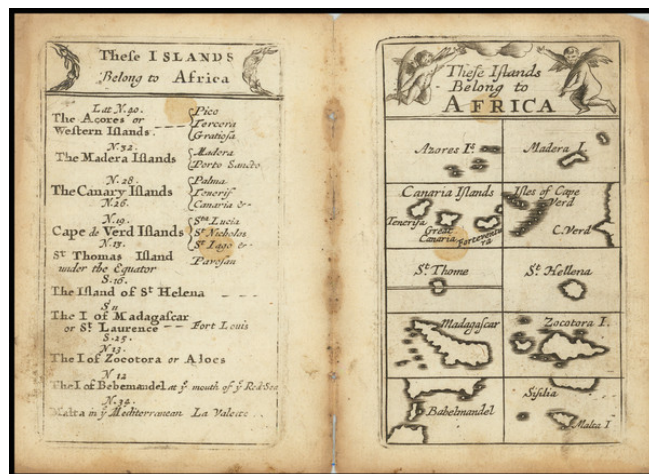 These ISLANDS
Belong to Africa
Lat N. 40.
The Açores or
Western Islands.
Pico
Tercera
Gratiosa
N. 32.
The Madera Islands
Madera
Porto Sancto
N. 28.
The Canary Islands
N. 26.
Palma
Tenerif
Canaria &
N. 19.
Cape de Verd Islands
N. 13.
Sta Lucia
St Nicholas
St Iago &
St Thomas Island
under the Equator
Pavosan
S. 16.
The Island of St Helena
S. 11
The I of Madagascar
or St Laurence
S. 25.
Fort Louis
N 13.
The I of Zocotora or Alocs
N 12
The I of Bebemandel at ye mouth of ye Red Sea
N. 34.
Malta in ye Mediterranean La Valette
These Islands
Belong to
AFRICA
Azores Is.
Madera I.
Canaria Islands
Tenerifa
Great
Canaria
Forteventu
ra
Isles of Cape
Verd
C. Verd
St Thome
St Hellena
Madagascar
Zocotora I.
Babelmandel
Sisilia
Malta I